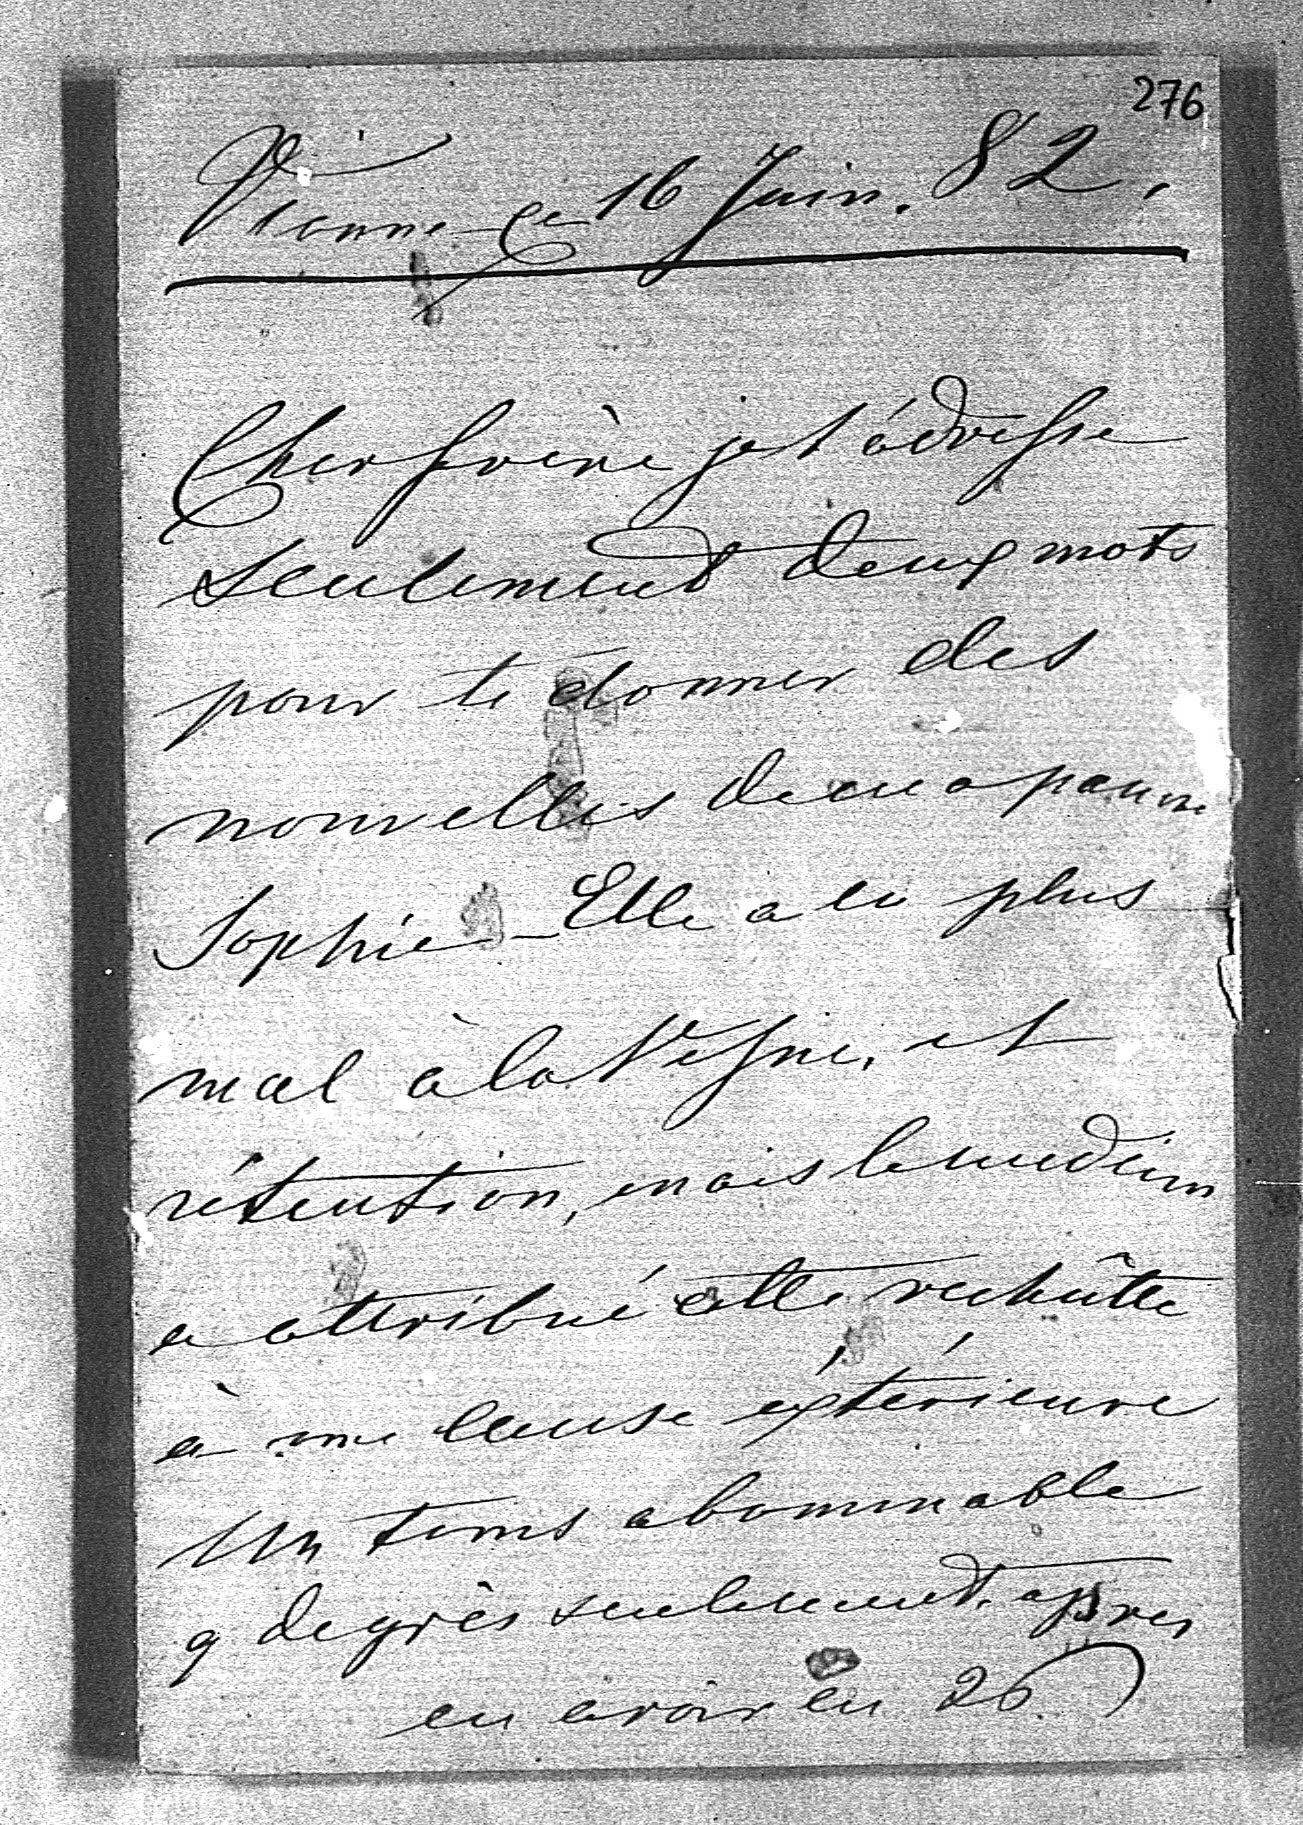 276
Vienne ce 16 Juin. 82.
Cher frère je t'ádresse
seulement deux mots
pour te donner des
nouvelles de ma pauvre
Sophie - Elle a eu plus
mal à la Vessie, et
rétention, mais le medecin
a attribué cette rechûtte
à une cause éxtérieure
Un tems abominable
9 degrès seulement, après
en avoir eu 26)